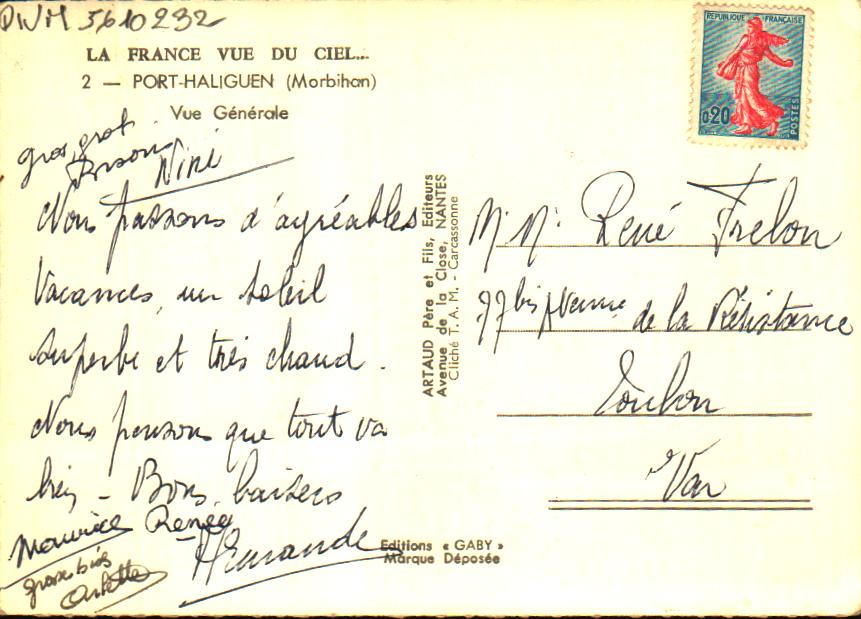 5610232
LA FRANCE VUE DU CIEL...
2 — PORT-HALIGUEN (Morbihan)
Vue Générale
gros
Nini
Nous passons d'agréables
Vacances, un soleil
superbe et très chaud.
Nous pensons que tout va
bien - Bons baisers
Maurice Renée
Arlette
ARTAUD Père et Fils, Editeurs
Avenue de la Close, NANTES
Cliché T. A. M. - Carcassonne
Editions « GABY »
Marque Déposée
REPUBLIQUE FRANÇAISE
0,20
POSTES
Mr Me René Frelon
77 bis Avenue de la Résistance
Toulon
Var